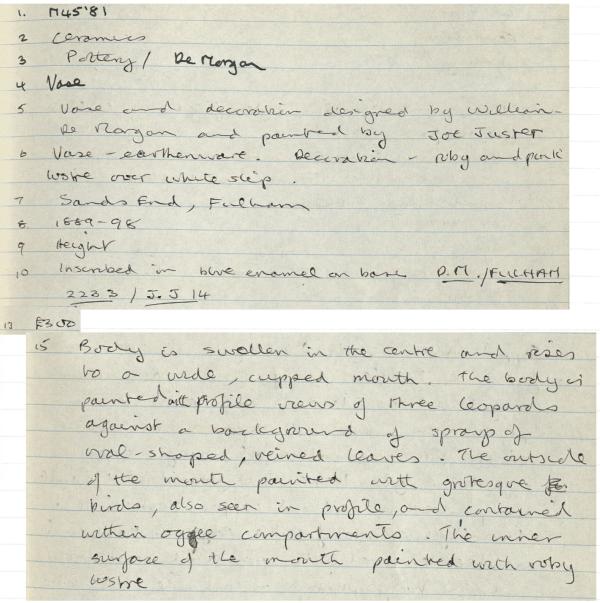 1. M45'81
2 Ceramics
3 Pottery / De Morgan
4 Vase
5 Vase and decoration designed by William
De Morgan and painted by Joe Juster
6 Vase - earthenware. Decoration - ruby and pink
lustre over white slip.
7 Sands End, Fulham
8. 1889-98
9 Height
10 Inscribed in blue enamel on base D.M./FULHAM
2233 / J.J 14
13 £300
15 Body is swollen in the centre and rises
to a wide, cupped mouth. The body is
painted with profile views of three leopards
against a background of sprays of
oval-shaped, veined leaves. The outside
of the mouth painted with grotesque
birds, also seen in profile, and contained
within ogee compartments. The inner
surface of the mouth painted with ruby
lustre